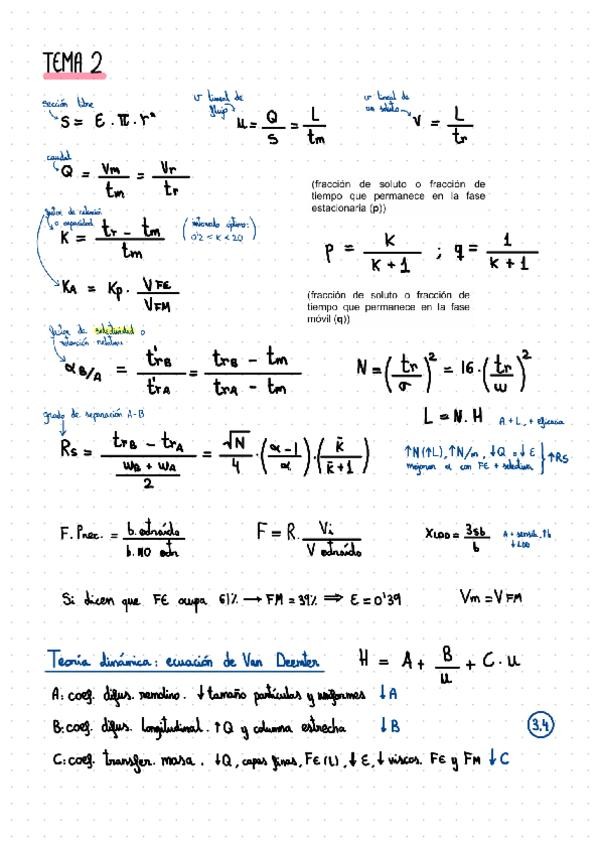 TEMA 2
sección libre
S = ε · π · r²
v lineal de flujo
μ = Q/S = L/tm
v lineal de un soluto
V = L/tr
caudal
Q = Vm/tm = Vr/tr
(fracción de soluto o fracción de
tiempo que permanece en la fase
estacionaria (p))
factor de retención
o capacidad
K = (tr - tm)/tm
(intervalo óptimo:
0'2 < K < 20)
p = K/(K+1) ; q = 1/(K+1)
KA = Kp · VFE/VFM
(fracción de soluto o fracción de
tiempo que permanece en la fase
móvil (q))
factor de selectividad o
retención relativa
α B/A = t'rB/t'rA = (trB - tm)/(trA - tm)
N = (tr/σ)² = 16 · (tr/w)²
L = N · H
A + L, + eficacia
grado de separación A-B
Rs = (trB - trA)/((wB + wA)/2) = √N/4 · ((α-1)/α) · (k̄/(k̄+1))
↑N(↑L), ↑N/m, ↓Q, ↓ε
mejoran α con FE + selectiva } ↑RS
F. Prec. = b. extraído/b. NO extr
F = R · Vi/V extraído
XLOD = 3sb/b
A + sensib, ↑b
↓LOD
Si dicen que FE ocupa 61% → FM = 39% ⇒ ε = 0'39
Vm = VFM
Teoría dinámica: ecuación de Van Deemter
H = A + B/u + C · u
A: coef. difus. remolino. ↓ tamaño partículas y uniformes ↓A
B: coef. difus. longitudinal. ↑Q y columna estrecha ↓B
3.4
C: coef. transfer. masa. ↓Q, capas finas, FE(L), ↓ε, ↓viscos. FE y FM ↓C